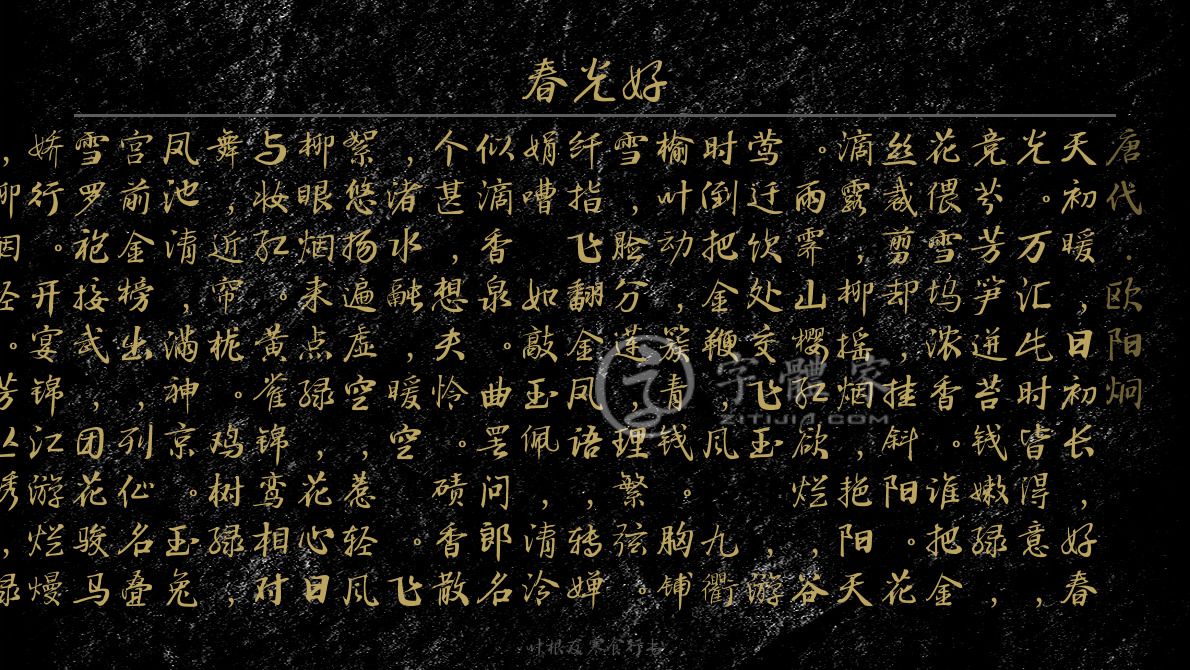 春光好
唐代·欧阳炯
天初暖，日初长，好春
光。万汇此时皆得意，
竞芬芳。笋迸苔钱嫩绿，
花偎雪坞浓香。谁把金
丝裁剪却，挂斜阳。花
滴露，柳摇烟，艳阳天
。雨霁山樱红欲烂，谷
莺迁饮处交飞玉，游
时倒把金鞭，风九衢
榆叶动，簇青钱。胸铺
雪，脸分莲，理繁弦。
纤指飞翻金凤语，转婵
娟嘈如敲玉佩，清冷
似滴香泉。曲罢问郎名
个甚，想夫怜。碛香散
，渚水融，暖空空，飞
絮悠扬遍虚空，惹轻风
柳眼烟来点绿，花心日
与妆红。黄雀锦鸾相对
舞，近帘栊。鸡树绿，
凤池清，满神京。玉兔
宫前金榜出，列仙名叠
雪罗袍接武，团花骏马
娇行。开宴锦江游烂熳